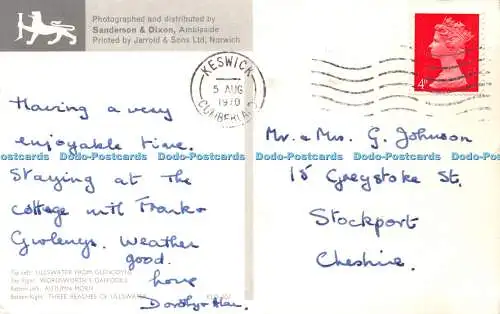 Photographed and distributed by
Sanderson & Dixon, Ambleside
Printed by Jarrold & Sons Ltd, Norwich
KESWICK
5 AUG
1970
CUMBERLAND
4D
Having a very
enjoyable time.
Staying at the
cottage with Frank +
Weather
good.
love
Dorothy + Alan.
Mr. & Mrs. G. Johnson
15 Greystoke St.
Stockport
Cheshire.
Dodo-Postcards Dodo-Postcards Dodo-Postcards Dodo-Postcards
Top Left: ULLSWATER FROM GLENCOYNE
Top Right: WORDSWORTH'S DAFFODILS
Bottom Left: AUTUMN MORN
Bottom Right: THREE REACHES OF ULLSWATER